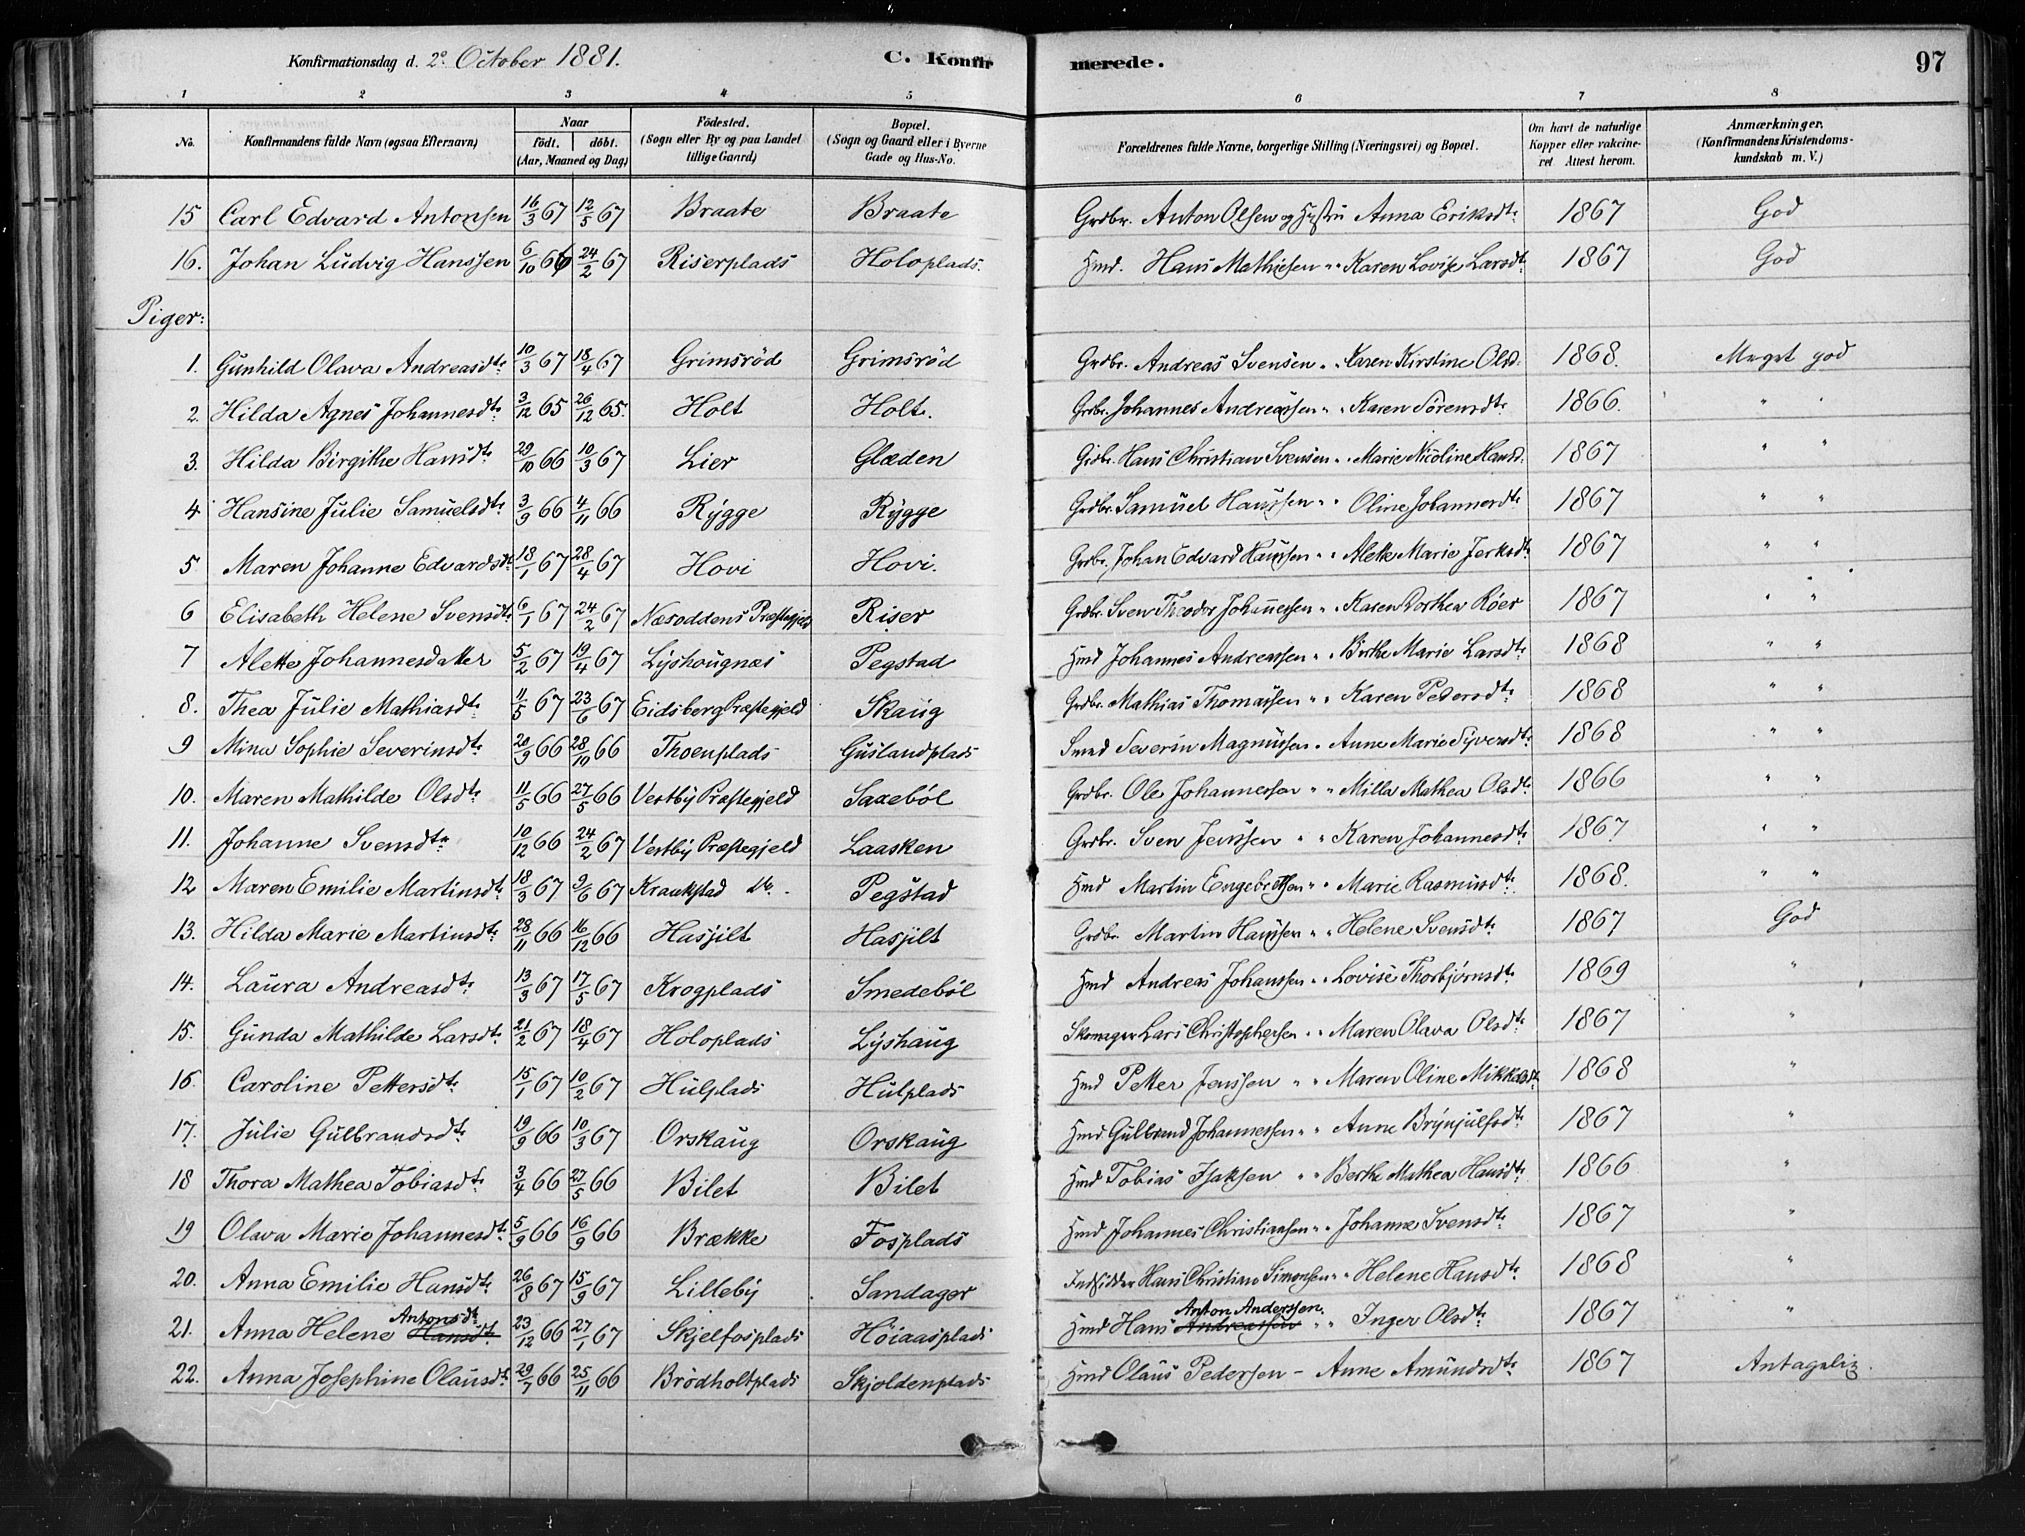 Konfirmationsdag d. 2° October 1881. C. Konfirmerede. 97
1 2 3 4 5 6 7 8
No. Konfirmandens fulde Navn (ogsaa Efternavn) Naar födt. döbt. (Aar, Maaned og Dag) Födested. (Sogn eller By og paa Landet tillige Gaard) Bopæl. (Sogn og Gaard eller i Byerne Gade og Hus-No. Forældrenes fulde Navne, borgerlige Stilling (Næringsvei) og Bopæl. Om havt de naturlige Kopper eller vakcineret Attest herom. Anmærkninger. (Konfirmandens Kristendomskundskab m. V.)
15 Carl Edvard Antonsen 16/3 67 12/5 67 Braate Braate Grdbr. Anton Olsen og Hustru Anna Eriksdtr 1867 God
16. Johan Ludvig Hanssen 6/10 66 24/2 67 Riserplads Holoplads. Hmd. Hans Mathiesen " " Karen Lovise Larsdtr 1867 God
Piger:
1. Gunhild Olava Andreasdtr 10/3 67 18/4 67 Grimsröd Grimsröd Grdbr. Andreas Svensen " " Karen Kirstine Olsd. 1868. Meget god
2. Hilda Agnes Johannesdtr 3/12 65 26/12 65. Holt Holt. Grdbr. Johannes Andreassen " " Karen Sörensdtr 1866. " "
3. Hilda Birgithe Hansdtr 29/10 66 10/3 67 Lier Glæden Grdbr. Hans Christian Svensen " " Marie Nicoline Hansd. 1867 " "
4 Hansine Julie Samuelsdtr 3/9 66 4/11 66 Rygge Rygge Grdbr. Samuel Hanssen " " Oline Johannesdtr 1867 " "
5 Maren Johanne Edvardsdtr 18/1 67 28/4 67 Hovi Hovi. Grdbr. Johan Edvard Hanssen " " Alette Marie Jerksdtr 1867 " "
6 Elisabeth Helene Svensdtr 6/1 67 24/2 67 Næsoddens Præstegjeld Riser Grdbr. Sven Theodor Johannessen " " Karen Dorthea Röer 1867 " "
7 Alette Johannesdatter 5/2 67 19/4 67 Lyshougnæs Pegstad Hmd Johannes Andreassen " " Birthe Marie Larsdtr 1868 " "
8. Thea Julie Mathiasdtr 11/5 67 23/6 67 Eidsberg Præstegjeld Skaug Grdbr. Mathias Thomassen " " Karen Petersdtr 1868 " "
9 Mina Sophie Severinsdtr 20/9 66 28/10 66 Thoenplads Guslandplads Smed Severin Magnussen " Anne Marie Syversdtr 1868 " "
10. Maren Mathilde Olsdtr 11/5 66 27/5 66 Vestby Præstegjeld Saxeböl Grdbr. Ole Johannessen " " Milla Mathea Olsdtr 1866 " "
11. Johanne Svensdtr 10/12 66 24/2 67 Vestby Præstegjeld Laasken Grdbr. Sven Jenssen " " Karen Johannesdtr 1867 " "
12 Maren Emilie Martinsdtr 18/3 67 9/6 67 Kraakstad do. Pegstad Hmd Martin Engebretsen " " Marie Rasmusdtr 1868. " "
13. Hilda Marie Martinsdtr 28/11 66 16/12 66 Hasjilt Hasjilt Grdbr. Martin Hanssen " " Helene Svensdtr 1867 God
14. Laura Andreasdtr 13/3 67 17/5 67 Krogplads Smedeböl Hmd Andreas Johanssen " " Lovise Thorbjørnsdtr 1869 "
15. Gunda Mathilde Larsdtr 21/2 67 18/4 67 Holoplads Lyshaug Skomager Lars Christophersen " " Maren Olava Olsdtr 1867 "
16. Caroline Pettersdtr 15/1 67 10/2 67 Hulplads Hulplads Hmd Petter Jenssen " " Maren Oline Mikkelsdtr 1868 "
17. Julie Gulbrandsdtr 19/9 66 10/3 67 Orskaug Orskaug Hmd. Gulbrand Johannessen " " Anne Brynjulfsdtr 1867 "
18 Thora Mathea Tobiasdtr 3/4 66 27/5 66 Bilet Bilet Hmd Tobias Isaksen " " Berthe Mathea Hansdtr 1866 "
19 Olava Marie Johannesdtr 5/9 66 16/9 66 Brække Fosplads Hmd Johannes Christiansen " " Johanne Svensdtr 1867 "
20. Anna Emilie Hansdtr 26/8 67 15/9 67 Lilleby Sandager Indsidder Hans Christian Simonsen " " Helene Hansdtr 1868 "
21. Anna Helene Hansdtr Antonsdtr 23/12 66 27/1 67 Skjelfosplads Höiaasplads Hmd Hans Andreassen Anton Anderssen " " Inger Olsdtr 1867 "
22. Anna Josephine Olausdtr 29/7 66 25/11 66 Brödholtplads Skjoldenplads Hmd Olaus Pedersen - Anne Amundsdtr 1867 Antagelig.